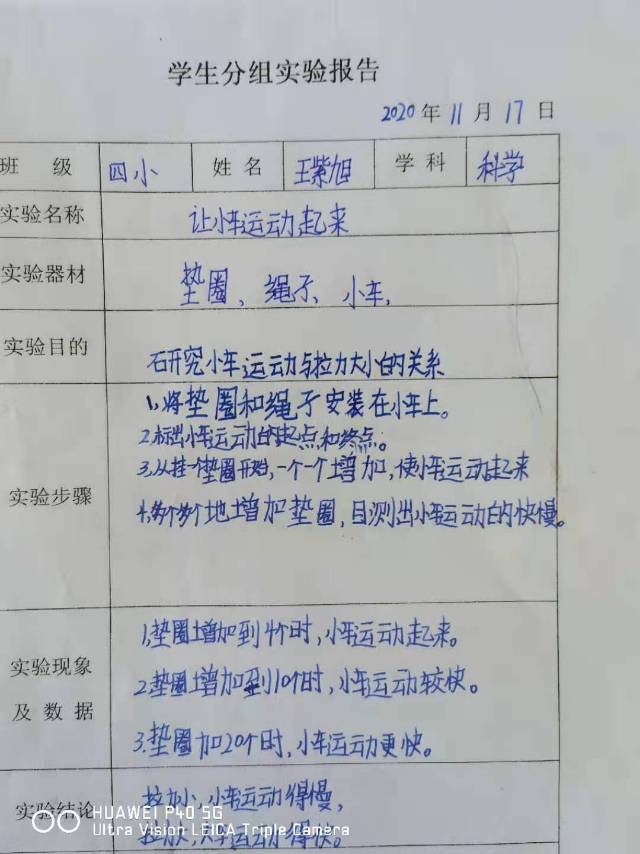 学生分组实验报告
2020年11月17日
班级 四小 姓名 王紫旭 学科 科学
实验名称 让小车运动起来
实验器材 垫圈、绳子、小车,
实验目的 研究小车运动与拉力大小的关系
实验步骤
1、将垫圈和绳子安装在小车上。
2.标出小车运动的起点和终点。
3.从挂一个垫圈开始,一个一个增加,使小车运动起来
4.多个多个地增加垫圈,目测出小车运动的快慢。
实验现象及数据
1.垫圈增加到4个时,小车运动起来。
2.垫圈增加到10个时,小车运动较快。
3.垫圈加20个时,小车运动更快。
实验结论
拉力小,小车运动得慢,
拉力大,小车运动得快。
HUAWEI P40 5G
Ultra Vision LEICA Triple Camera